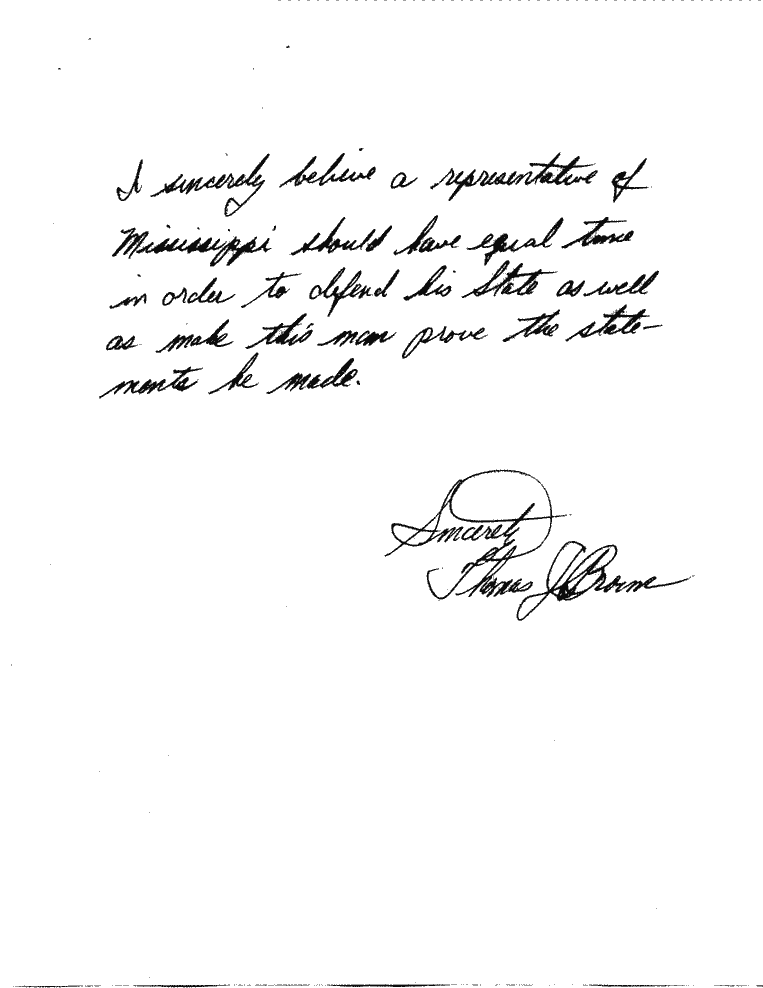 I sincerely believe a representative of
Mississippi should have equal time
in order to defend his State as well
as make this man prove the state-
ments he made.
Sincerely
Thomas J. Brown